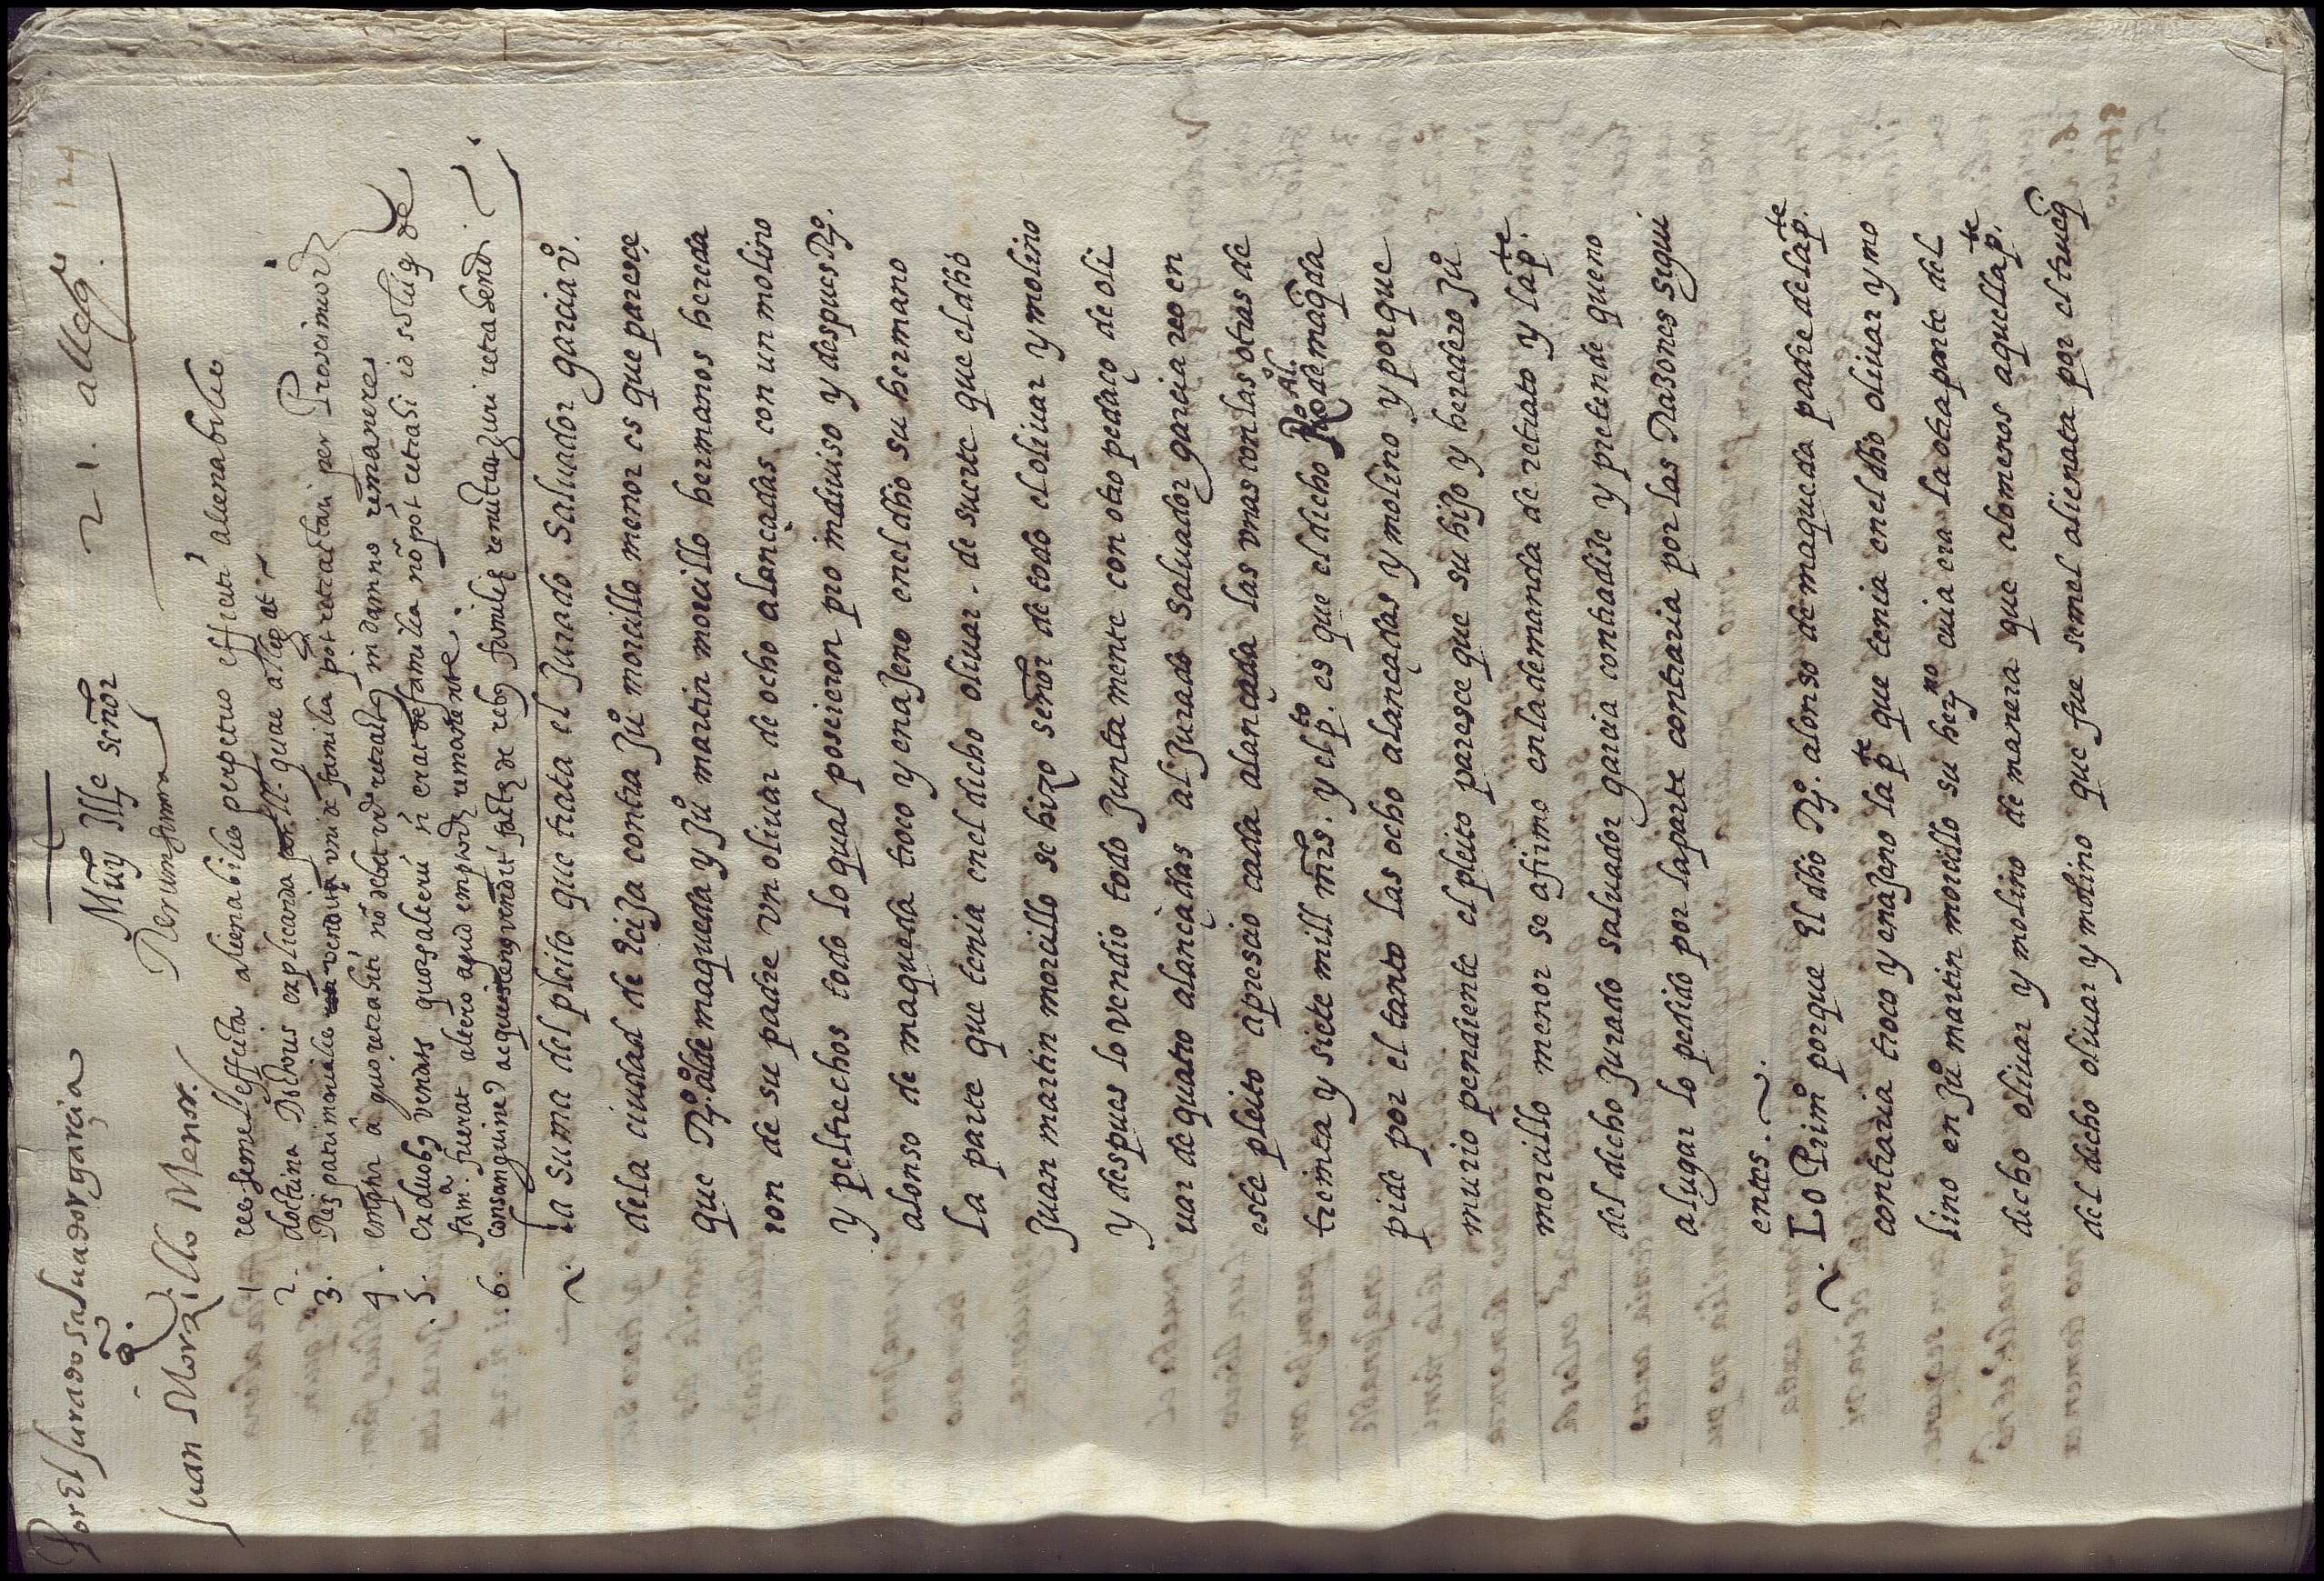 Por El Jurado saluador garçia
21. alleg.
124
Muy Illē señor
Juan Morzillo Menor.
Rerum summa
1 res semel effecta alienabilis perpetuo efficit alienabilis
2. doctina Doctoris explicanda quae alleg at
3. Res patrimonialis vendita uni de familia pōt retractari per Proximiorē
4. emptor a quo retrahit nō debet in damno remanere
5. ex duobus venditis quorum alterū erat de familia nō pōt retrahi
fam.a fuerat altero apud emptorē remanente.
6. consanguineus de rebus familie
~ La suma del pleito que trata el Jurado saluador garcia vº.
dela ciudad de Ecija contra Juº morcillo menor es que paresçe
que Rº. alº de maqueda y Juº martin morcillo hermanos hereda
ron de su padre vn oliuar de ocho alançadas con un molino
y peltrechos todo lo qual poseieron pro indiuiso y despues Rº.
alonso de maqueda troco y enaJeno enel dhō su hermano
La parte que tenia enel dicho oliuar. de suerte que el dhō
Juan martin morcillo se hizo señor de todo el oliuar y molino
y despues lo vendio todo Junta mente con otro pedaço de oli
uar de quatro alançadas al Jurado saluador garcia reo en
este pleito apresçio cada alançada las vnas con las otras de
treinta y siete mill mrs̄. y el p.to es que el dicho Rº Al.º de maqda
pide por el tanto las ocho alançadas y molino y porque
murio pendiente el pleito paresce que su hijo y heredero Juº
morcillo menor se afirmo enla demanda de retrato y la p.te
del dicho Jurado saluador garcia contradise y pretende queno
a lugar lo pedido por la parte contraria por las Razones sigui
entes. ~
~ Lo Primº porque El dhō Rº. alonso de maqueda padre dela p.te
contraria troco y enaJeno la p.te que tenia enel dhō oliuar y mo
lino en Juº martin morcillo su herno cuia era la otra parte del
dicho oliuar y molino de manera que alomenos aquella p.te
del dicho oliuar y molino que fue semel alienata por el trueq̄